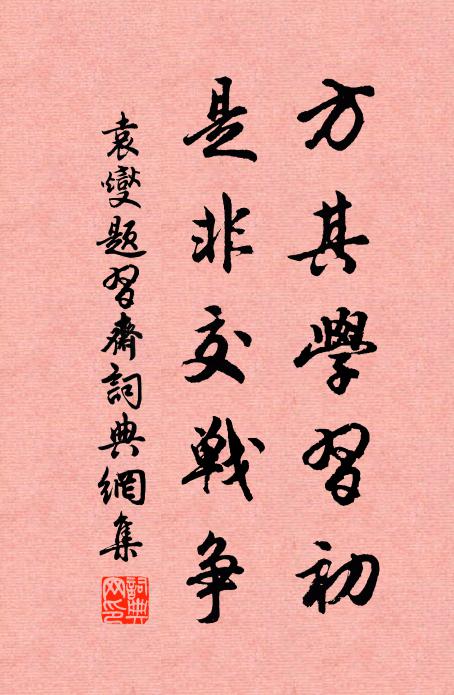 方其學習初
是非交戰争
袁燮題習齋詞典網集
詞典网印